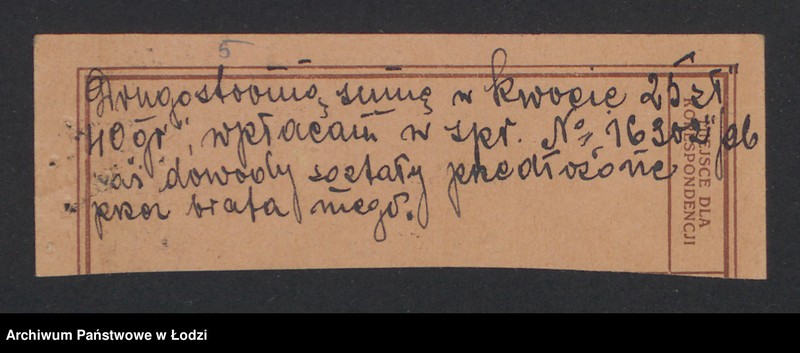 5
Drugostronną sumę w kwocie 25 zł
40 gr", wpłacam w spr. No 16302
zaś dowody zostały przedłożone
przez brata mego.
MIEJSCE DLA
KORESPONDENCJI
Archiwum Państwowe w Łodzi